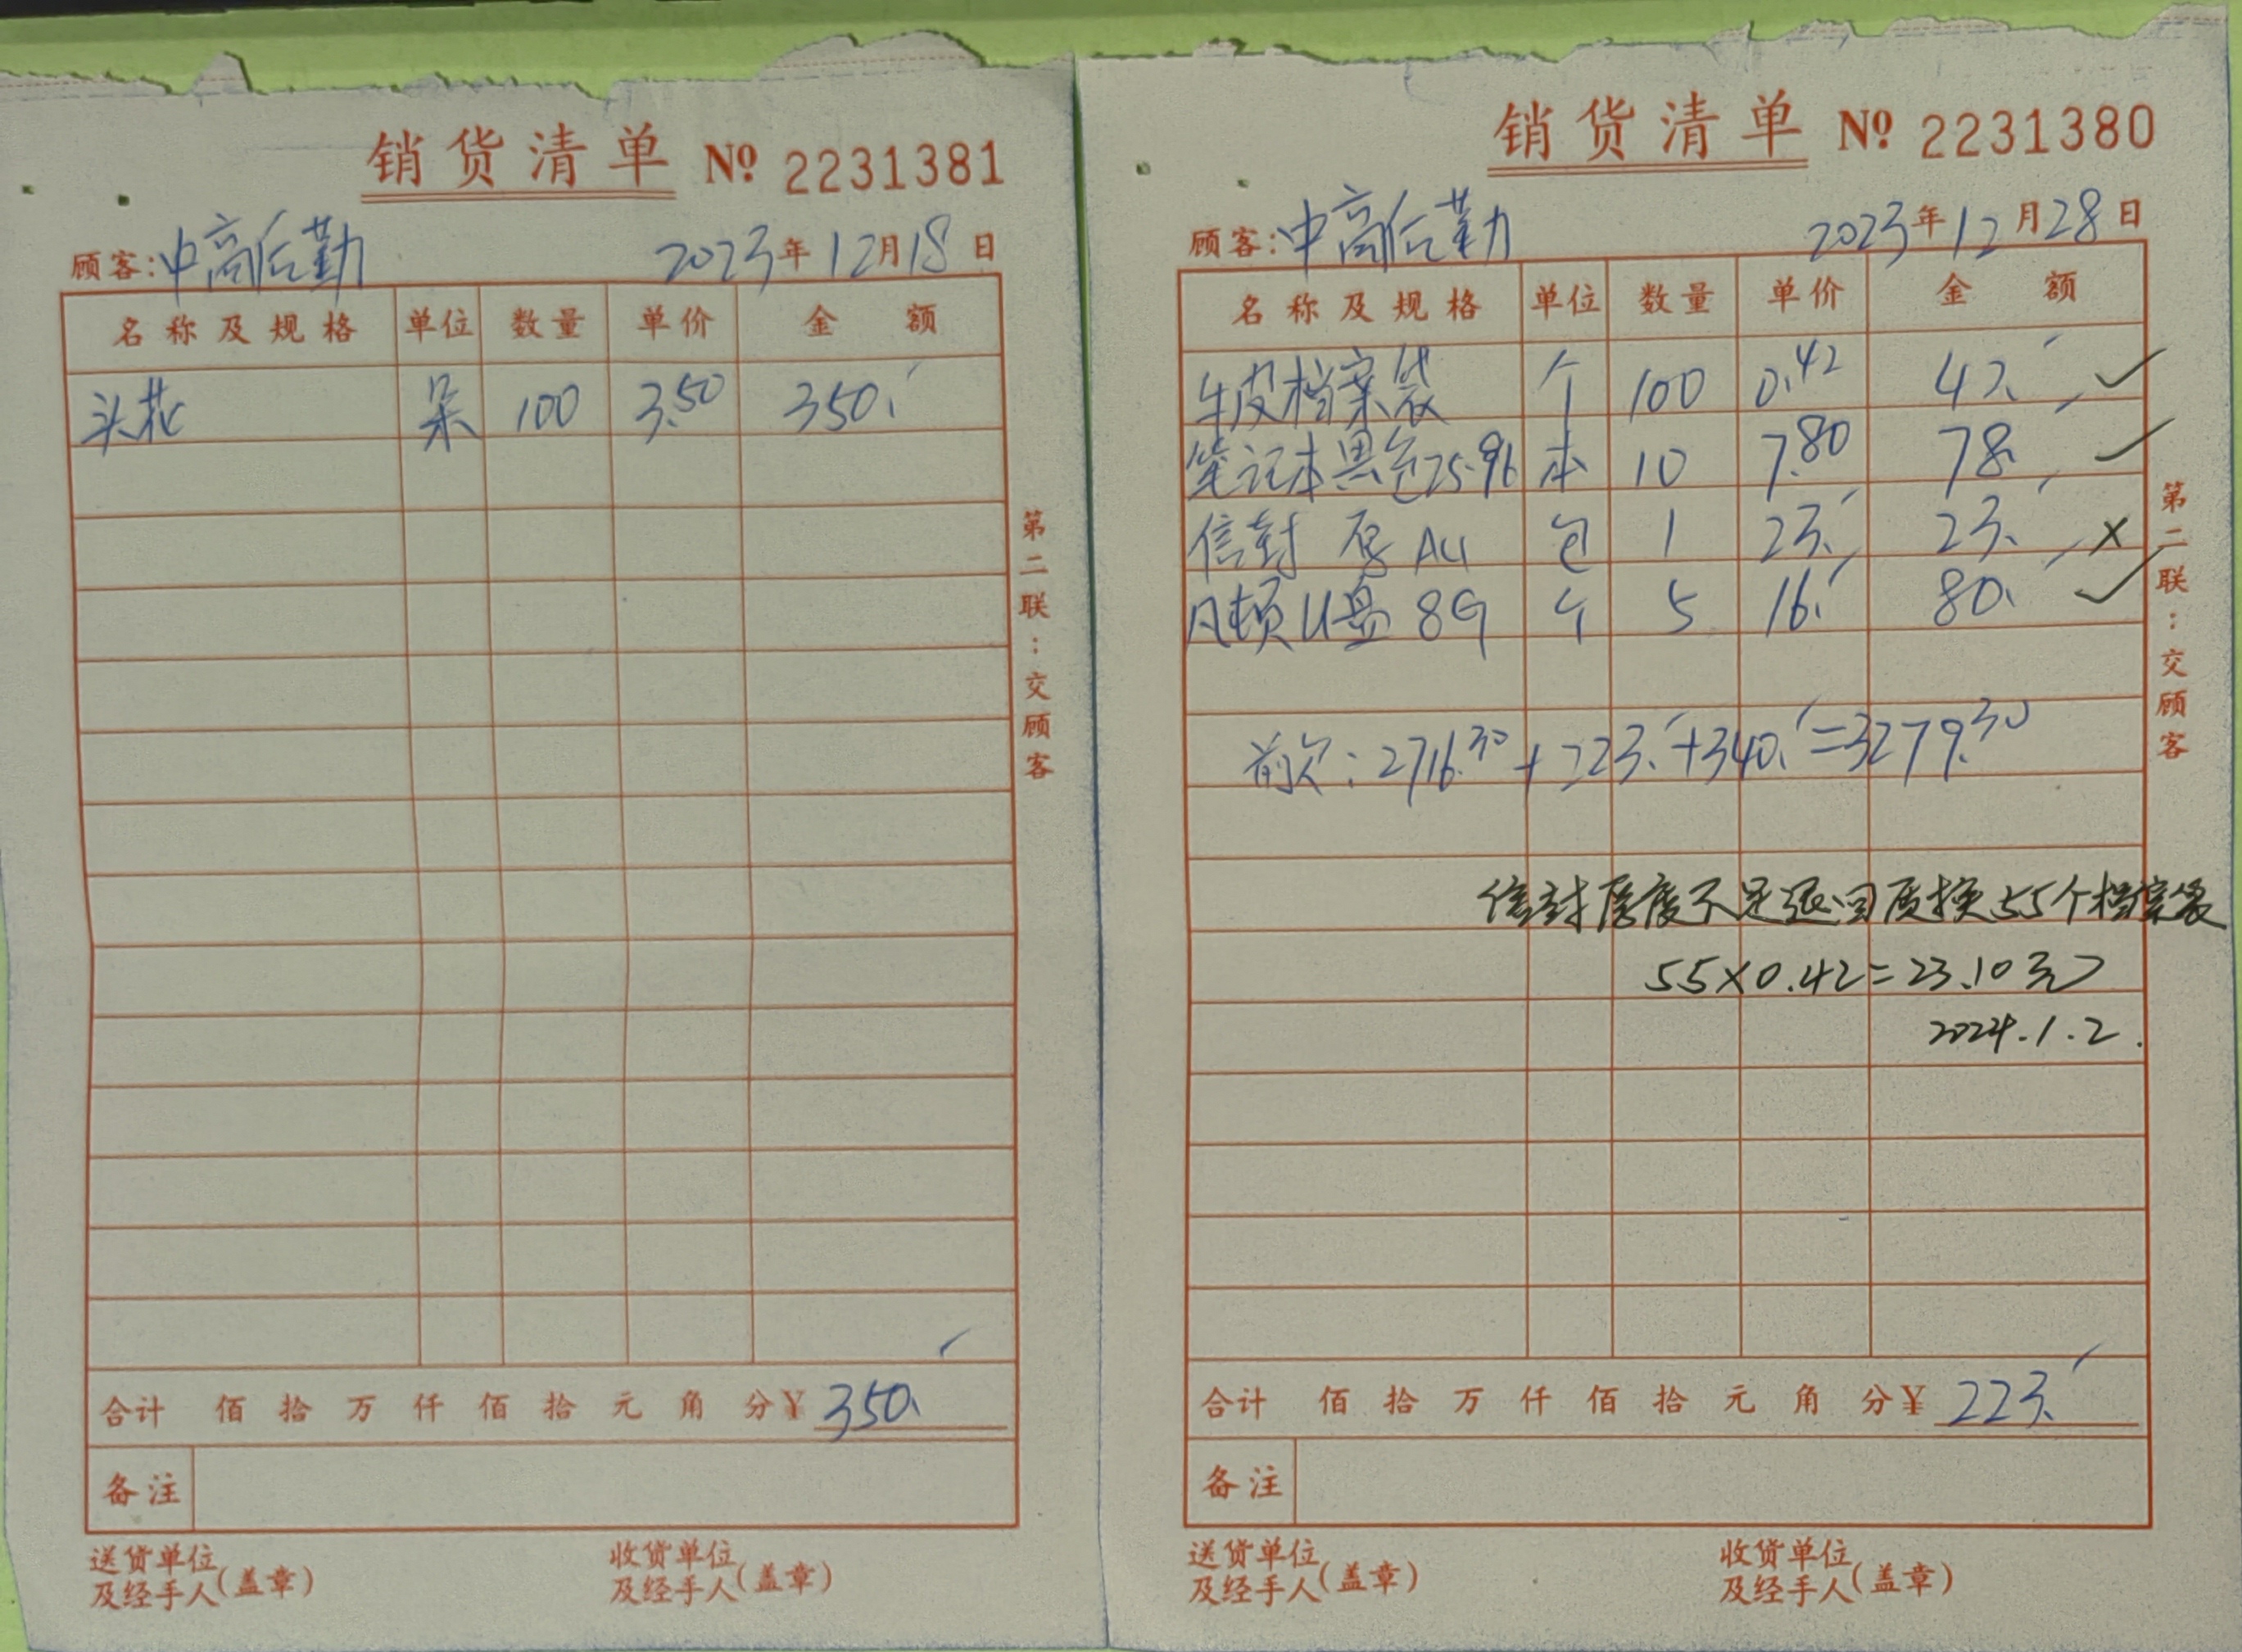 销货清单 Nº 2231381
顾客:中高后勤 2023年12月18日
名称及规格 单位 数量 单价 金额
头花 朵 100 3.50 350.
第二联:交顾客
合计 佰 拾 万 仟 佰 拾 元 角 分¥ 350.
备注
送货单位及经手人(盖章) 收货单位及经手人(盖章)
销货清单 Nº 2231380
顾客:中高后勤 2023年12月28日
名称及规格 单位 数量 单价 金额
牛皮档案袋 个 100 0.42 42. ✓
笔记本黑色25-96 本 10 7.80 78. ✓
信封 厚 A4 包 1 23. 23. ×
U盘 8G 个 5 16. 80. ✓
前欠:2716.30+223.+340.=3279.30
信封厚度不足退回 换55个档案袋
55×0.42=23.10元
2024.1.2.
第二联:交顾客
合计 佰 拾 万 仟 佰 拾 元 角 分¥ 223.
备注
送货单位及经手人(盖章) 收货单位及经手人(盖章)